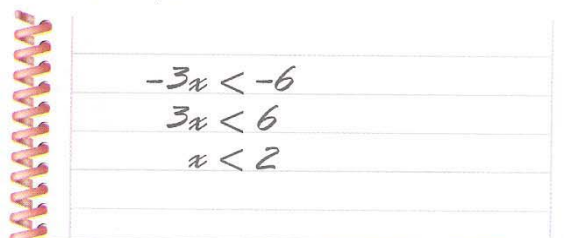 -3x < -6
3x < 6
x < 2